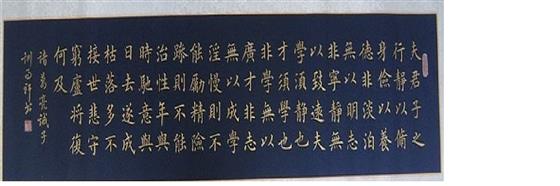 夫君子之
行静以脩
身儉以養
德非淡泊
無以明志
非寧静無
以致遠夫
學須静也
才須學也
非學無以
廣才非志
無以成學
淫慢則不
能勵精險
躁則不能
治性年與
時馳意與
日去遂成
枯落多不
接世悲守
窮廬将復
何及
諸葛亮誡子